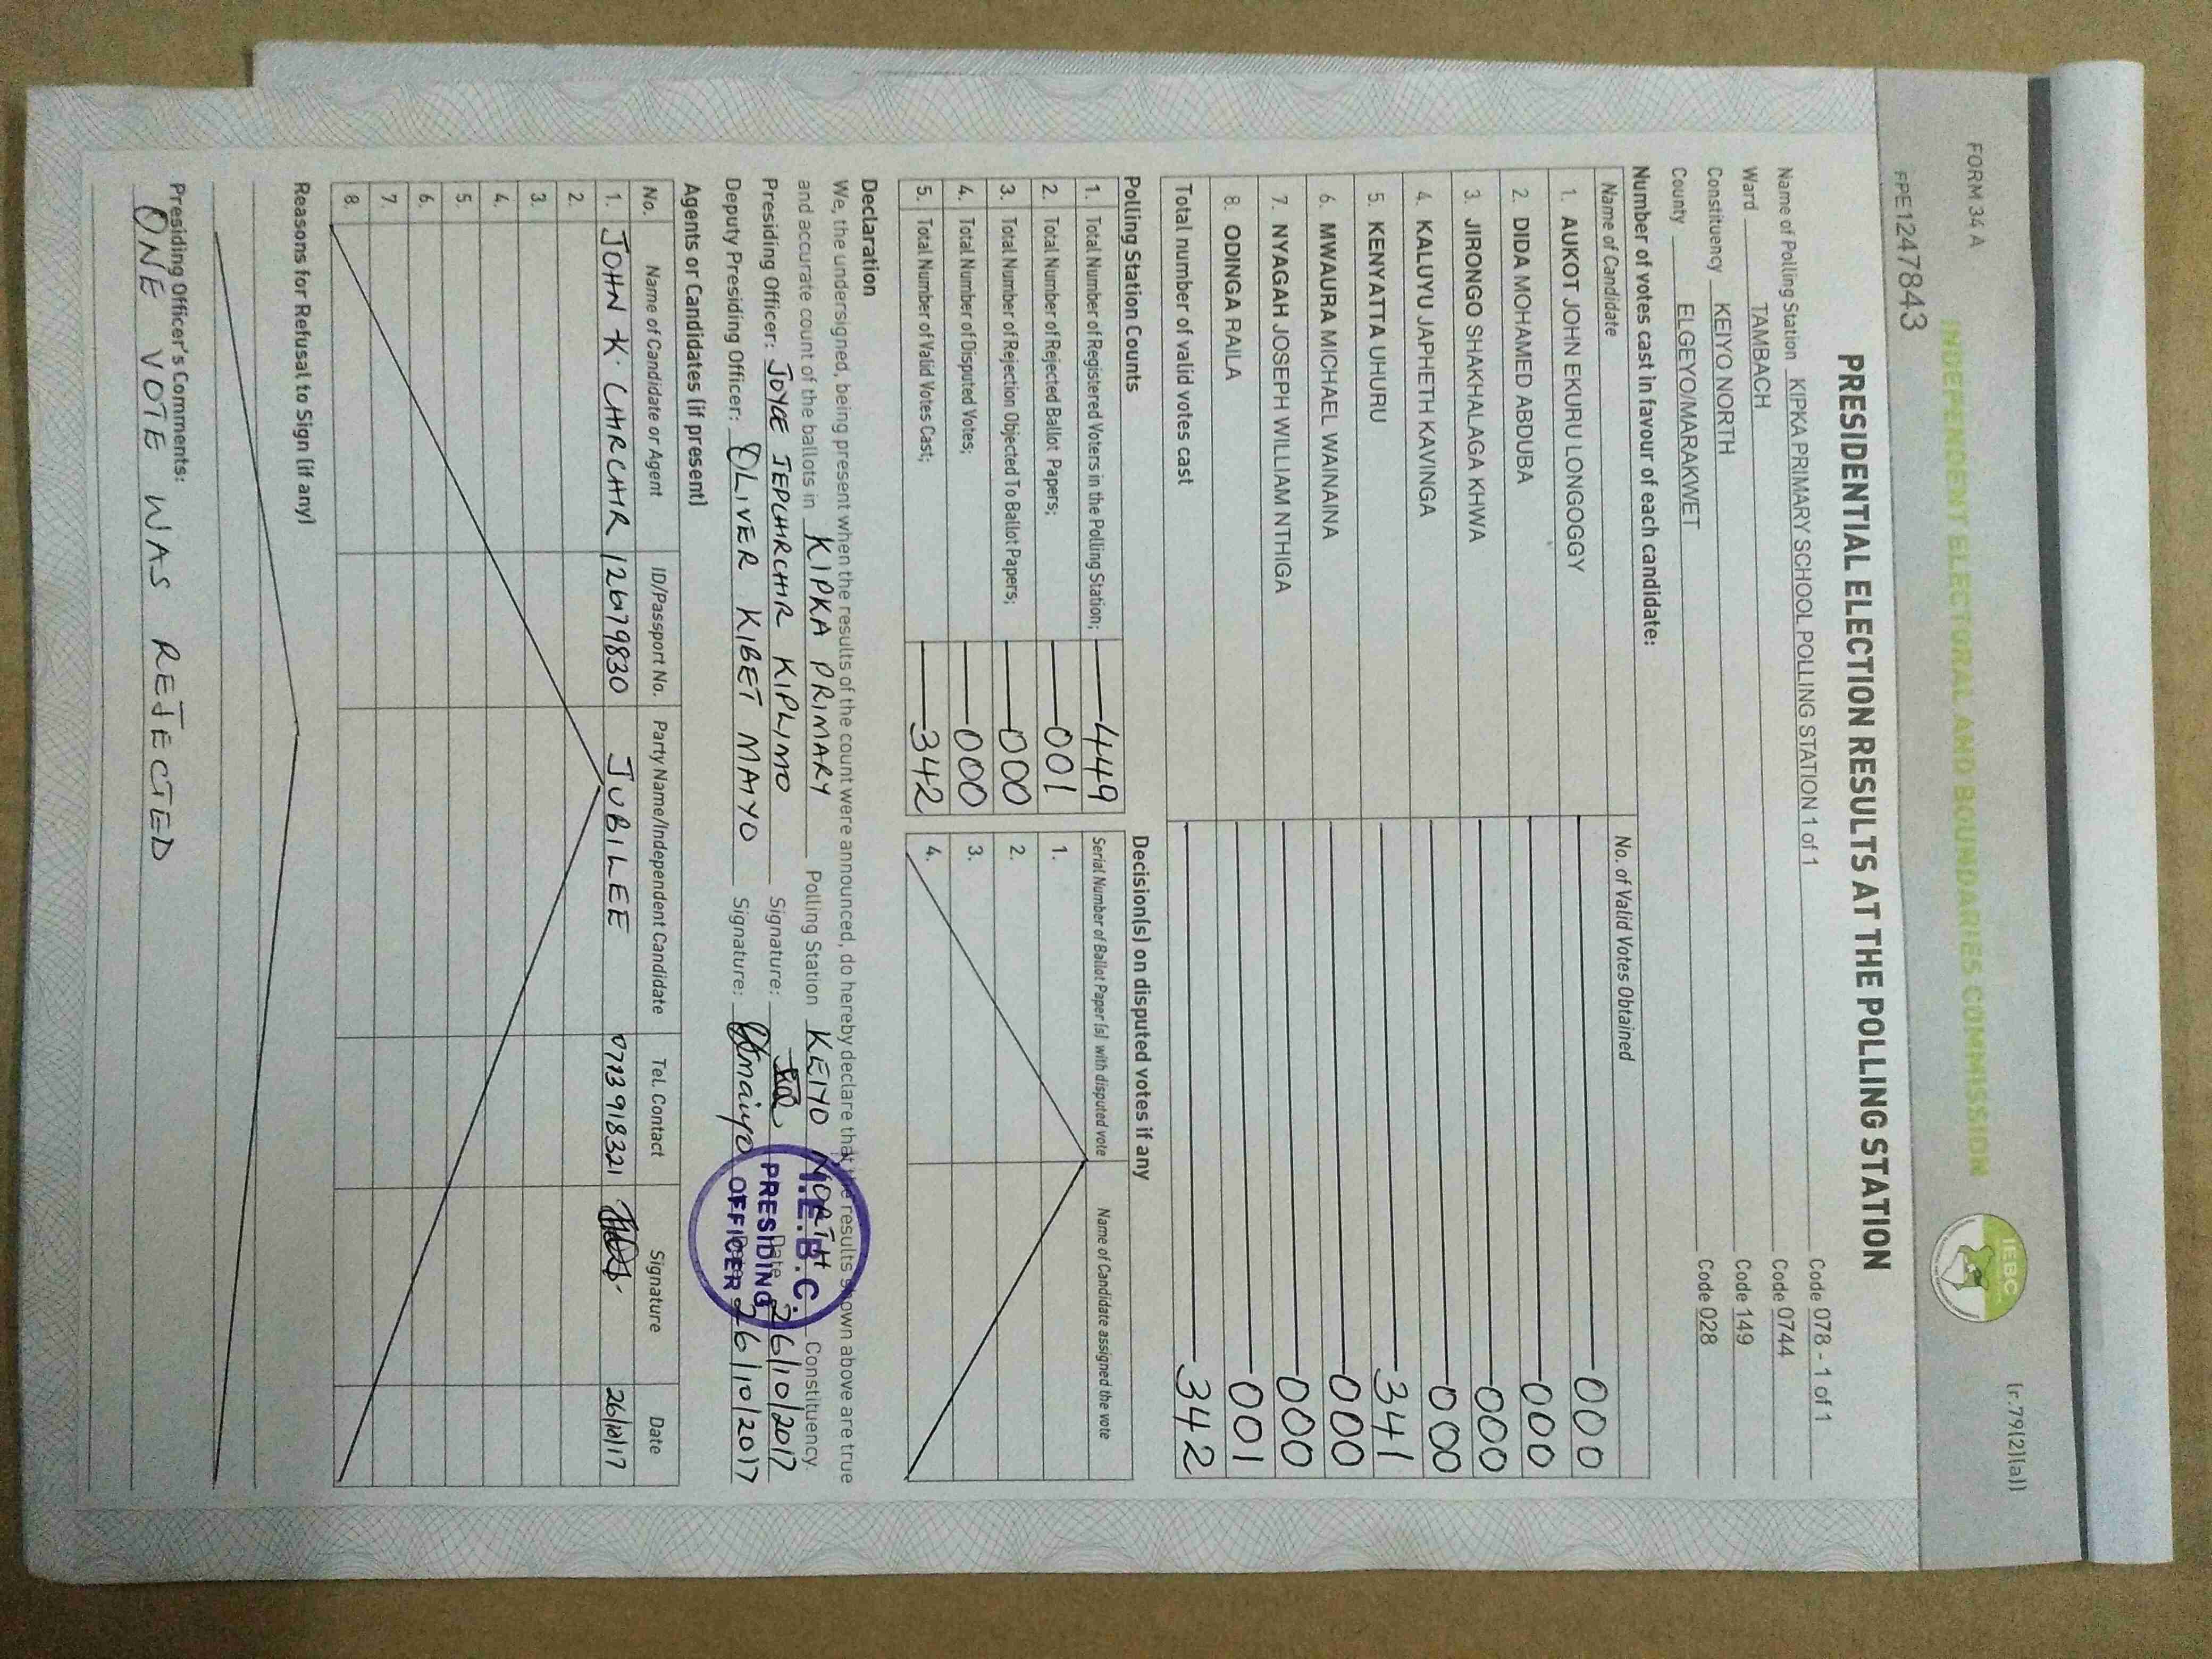 FORM 34 A
(r.79(2)(a))
INDEPENDENT ELECTORAL AND BOUNDARIES COMMISSION
IEBC
FPE1247843
PRESIDENTIAL ELECTION RESULTS AT THE POLLING STATION
Name of Polling Station KIPKA PRIMARY SCHOOL POLLING STATION 1 of 1 Code 078 - 1 of 1
Ward TAMBACH Code 0744
Constituency KEIYO NORTH Code 149
County ELGEYO/MARAKWET Code 028
Number of votes cast in favour of each candidate:
Name of Candidate No. of Valid Votes Obtained
1. AUKOT JOHN EKURU LONGOGGY 000
2. DIDA MOHAMED ABDUBA 000
3. JIRONGO SHAKHALAGA KHWA 000
4. KALUYU JAPHETH KAVINGA 000
5. KENYATTA UHURU 341
6. MWAURA MICHAEL WAINAINA 000
7. NYAGAH JOSEPH WILLIAM NTHIGA 000
8. ODINGA RAILA 001
Total number of valid votes cast 342
Polling Station Counts Decision(s) on disputed votes if any
1. Total Number of Registered Voters in the Polling Station; 449 Serial Number of Ballot Paper (s) with disputed vote Name of Candidate assigned the vote
2. Total Number of Rejected Ballot Papers; 001 1.
3. Total Number of Rejection Objected To Ballot Papers; 000 2.
4. Total Number of Disputed Votes; 000 3.
5. Total Number of Valid Votes Cast; 342 4.
Declaration
We, the undersigned, being present when the results of the count were announced, do hereby declare that the results shown above are true
and accurate count of the ballots in KIPKA PRIMARY Polling Station KEIYO NORTH Constituency.
Presiding Officer: JOYCE JEPCHRCHR KIPLIMO Signature: Date 26/10/2017
Deputy Presiding Officer: OLIVER KIBET MAIYO Signature: 26/10/2017
I.E.B.C.
PRESIDING
OFFICER
Agents or Candidates (if present)
No. Name of Candidate or Agent ID/Passport No. Party Name/Independent Candidate Tel. Contact Signature Date
1. JOHN K. CHRCHIR 12679830 JUBILEE 0713918321 26/10/17
2.
3.
4.
5.
6.
7.
8.
Reasons for Refusal to Sign (if any)
Presiding Officer's Comments:
ONE VOTE WAS REJECTED